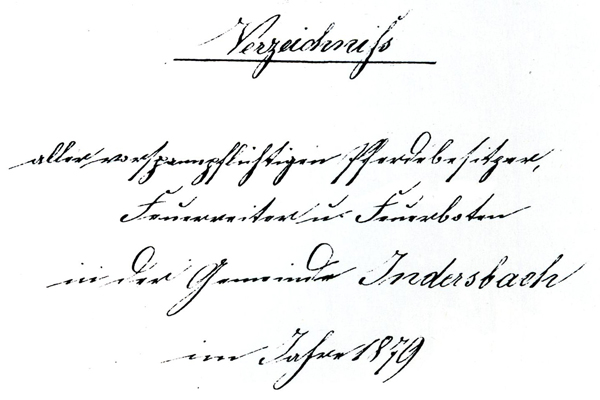 Verzeichniß
aller vorspannpflichtigen Pferdebesitzer,
Feuerreiter u. Feuerboten
in der Gemeinde Indersbach
im Jahre 1879